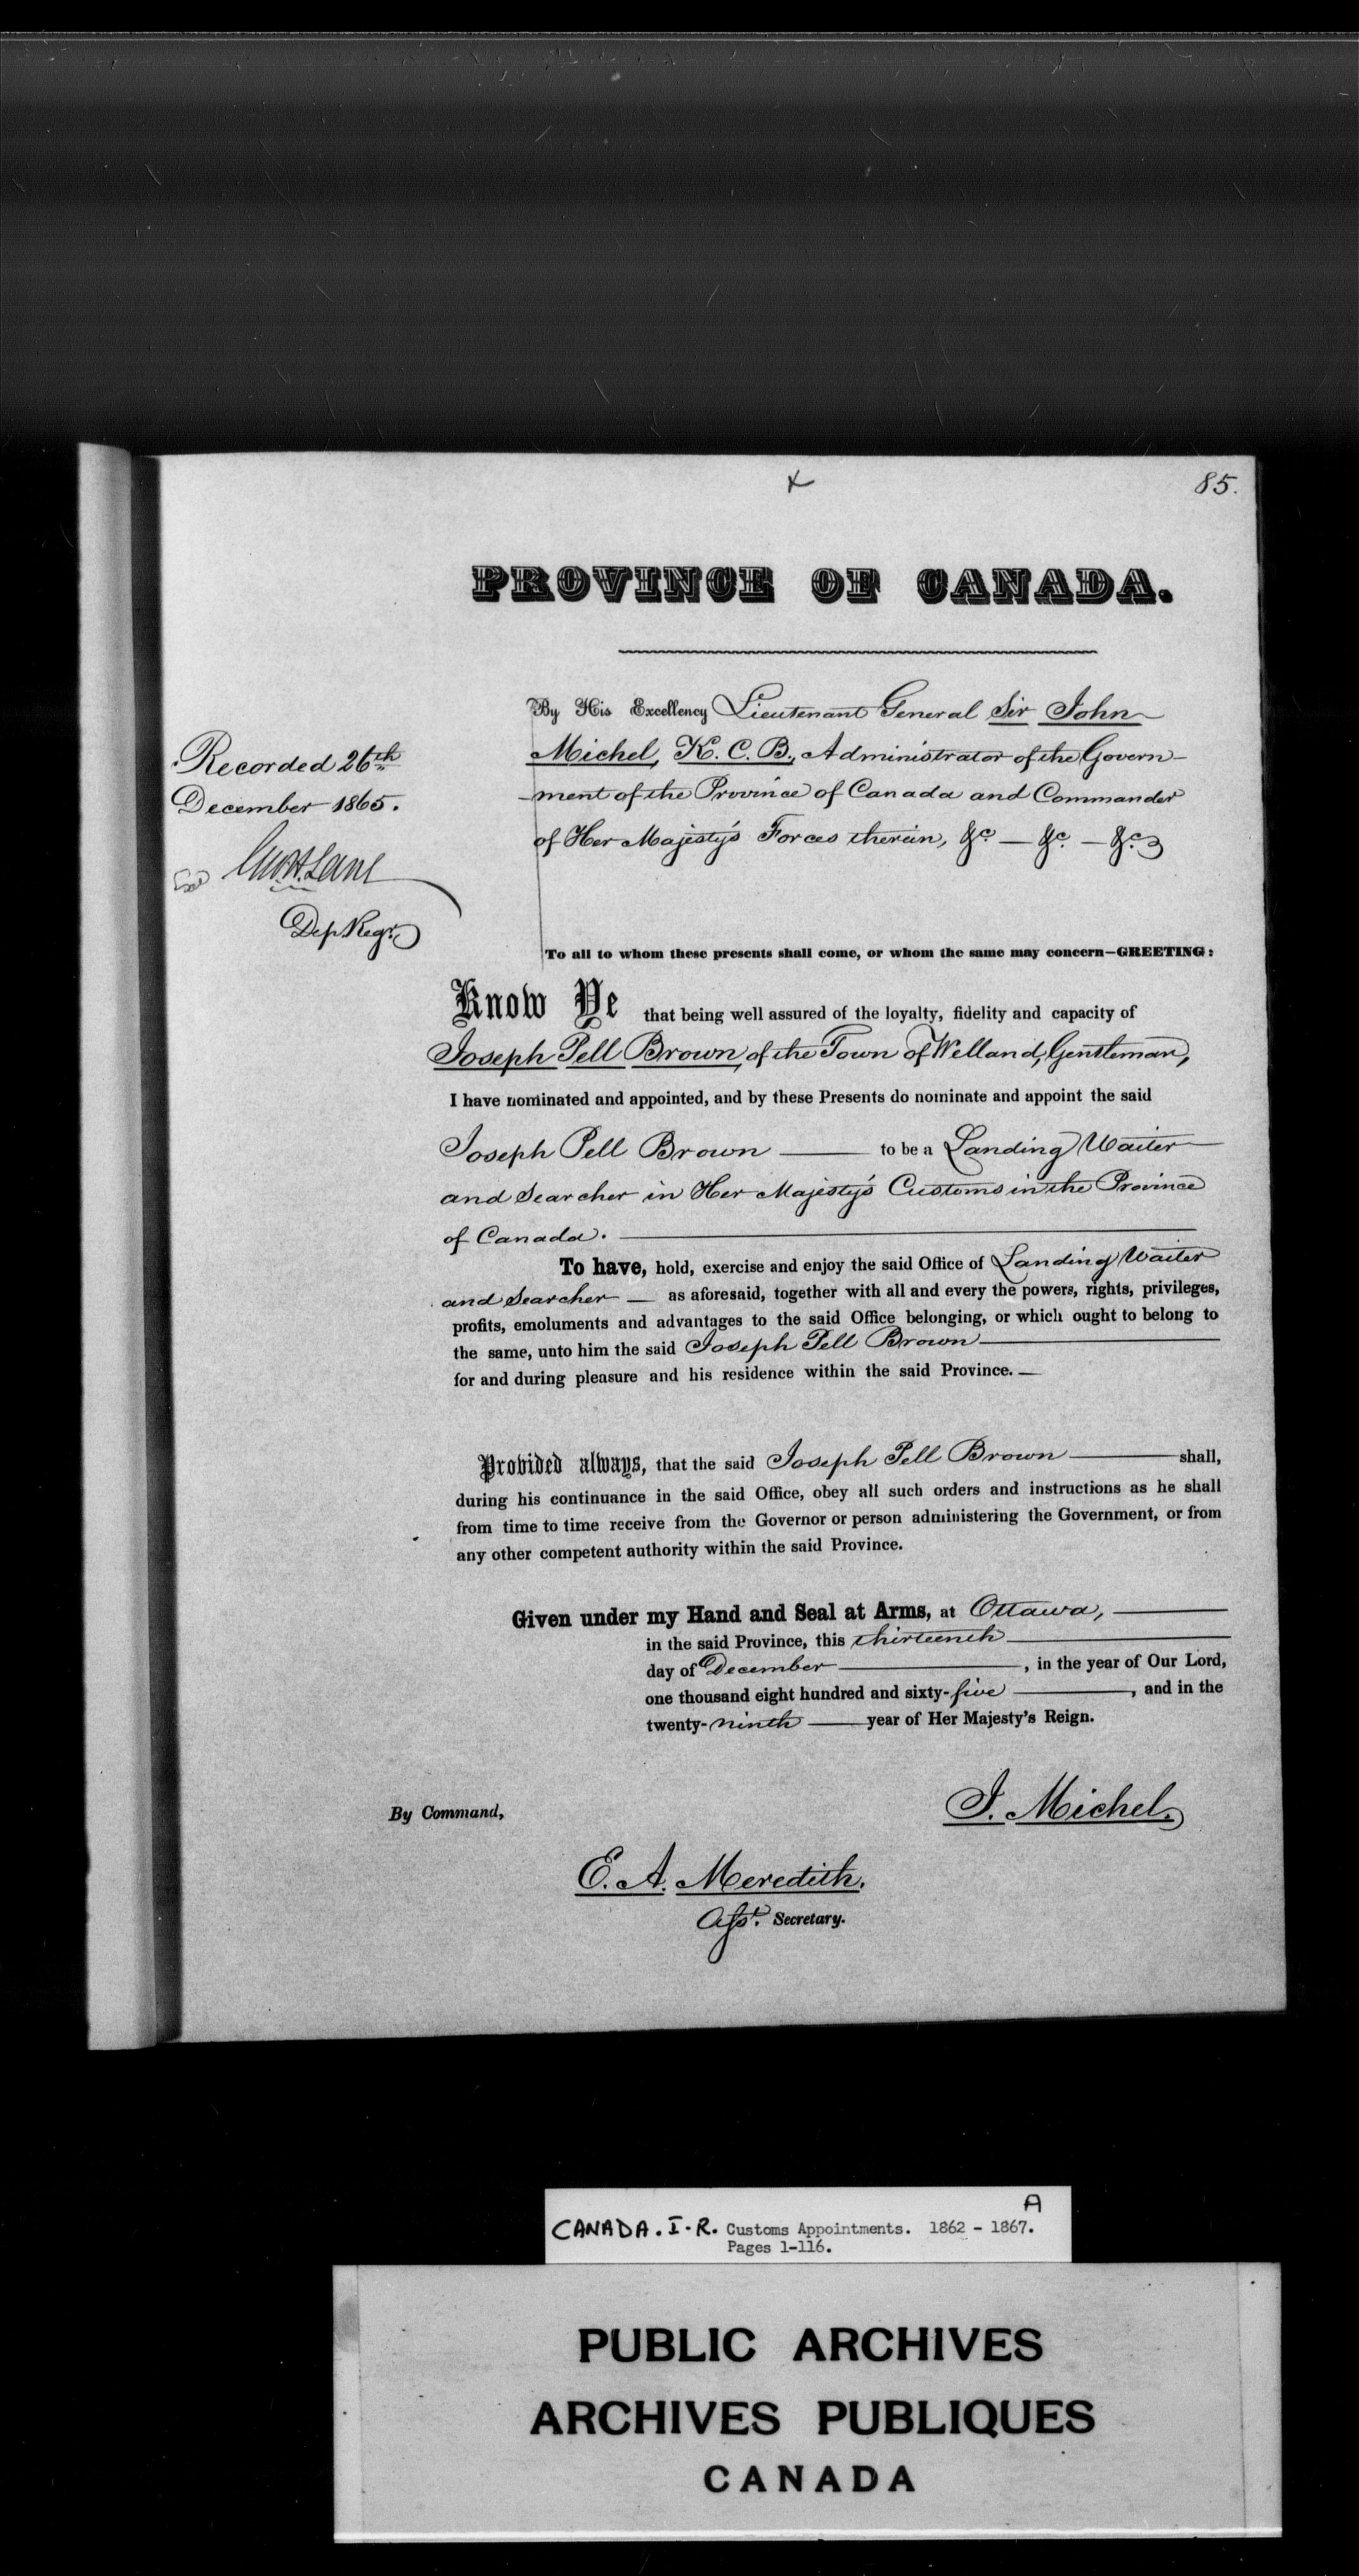 85.
PROVINCE OF CANADA.
By His Excellency Lieutenant General Sir John
Michel, K. C. B., Administrator of the Govern-
-ment of the Province of Canada and Commander
of Her Majesty's Forces therein, &c — &c — &c
Recorded 26th
December 1865.
Lane
Dep Regr
To all to whom these presents shall come, or whom the same may concern—GREETING:
Know Ye that being well assured of the loyalty, fidelity and capacity of
Joseph Pell Brown, of the Town of Welland, Gentleman,
I have nominated and appointed, and by these Presents do nominate and appoint the said
Joseph Pell Brown — to be a Landing Waiter
and Searcher in Her Majesty's Customs in the Province
of Canada.
To have, hold, exercise and enjoy the said Office of Landing Waiter
and Searcher — as aforesaid, together with all and every the powers, rights, privileges,
profits, emoluments and advantages to the said Office belonging, or which ought to belong to
the same, unto him the said Joseph Pell Brown —
for and during pleasure and his residence within the said Province. —
Provided always, that the said Joseph Pell Brown — shall,
during his continuance in the said Office, obey all such orders and instructions as he shall
from time to time receive from the Governor or person administering the Government, or from
any other competent authority within the said Province.
Given under my Hand and Seal at Arms, at Ottawa, —
in the said Province, this thirteenth —
day of December —, in the year of Our Lord,
one thousand eight hundred and sixty-five —, and in the
twenty-ninth — year of Her Majesty's Reign.
J. Michel.
By Command,
E. A. Meredith.
Asst. Secretary.
A
CANADA. I. R. Customs Appointments. 1862 - 1867.
Pages 1-116.
PUBLIC ARCHIVES
ARCHIVES PUBLIQUES
CANADA